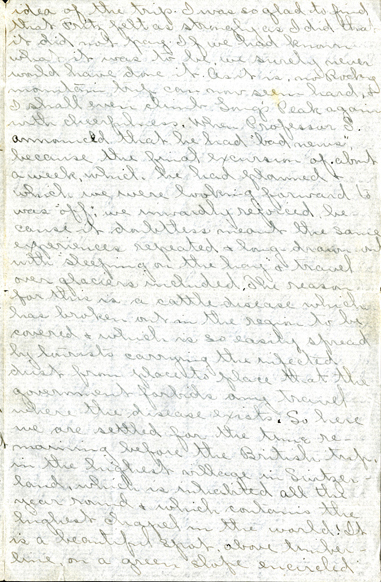 idea of the trip. I was so glad to find
that felt as strongly as I did that
it did not pay. If we had known
what it was to be, we surely never
would have done it. As it is, no Rocky
mountain trip can now seem hard, &
I shall even climb Long's Peak again
with cheerfulness. When Professor
announced that he had "bad news",
because the final excursion of about
a week, which we had planned &
which we were looking forward to
was "off", we inwardly rejoiced be-
cause it doubtless meant the same
experiences repeated & long drawn out
with sleeping on the hay & travel
over glaciers included. The reason
for this is a cattle disease which
has broken out in the region to be
covered & which is so easily spread
by tourists carrying the infected
dust from place to place that the
government forbids any travel
where the disease exists. So here
we are settled for the time re-
maining before the British trip,
in the highest village in Switzer-
land, which is inhabited all the
year round & which contains the
highest chapel in the world. It
is a beautiful spot, above timber-
line, on a green slope encircled